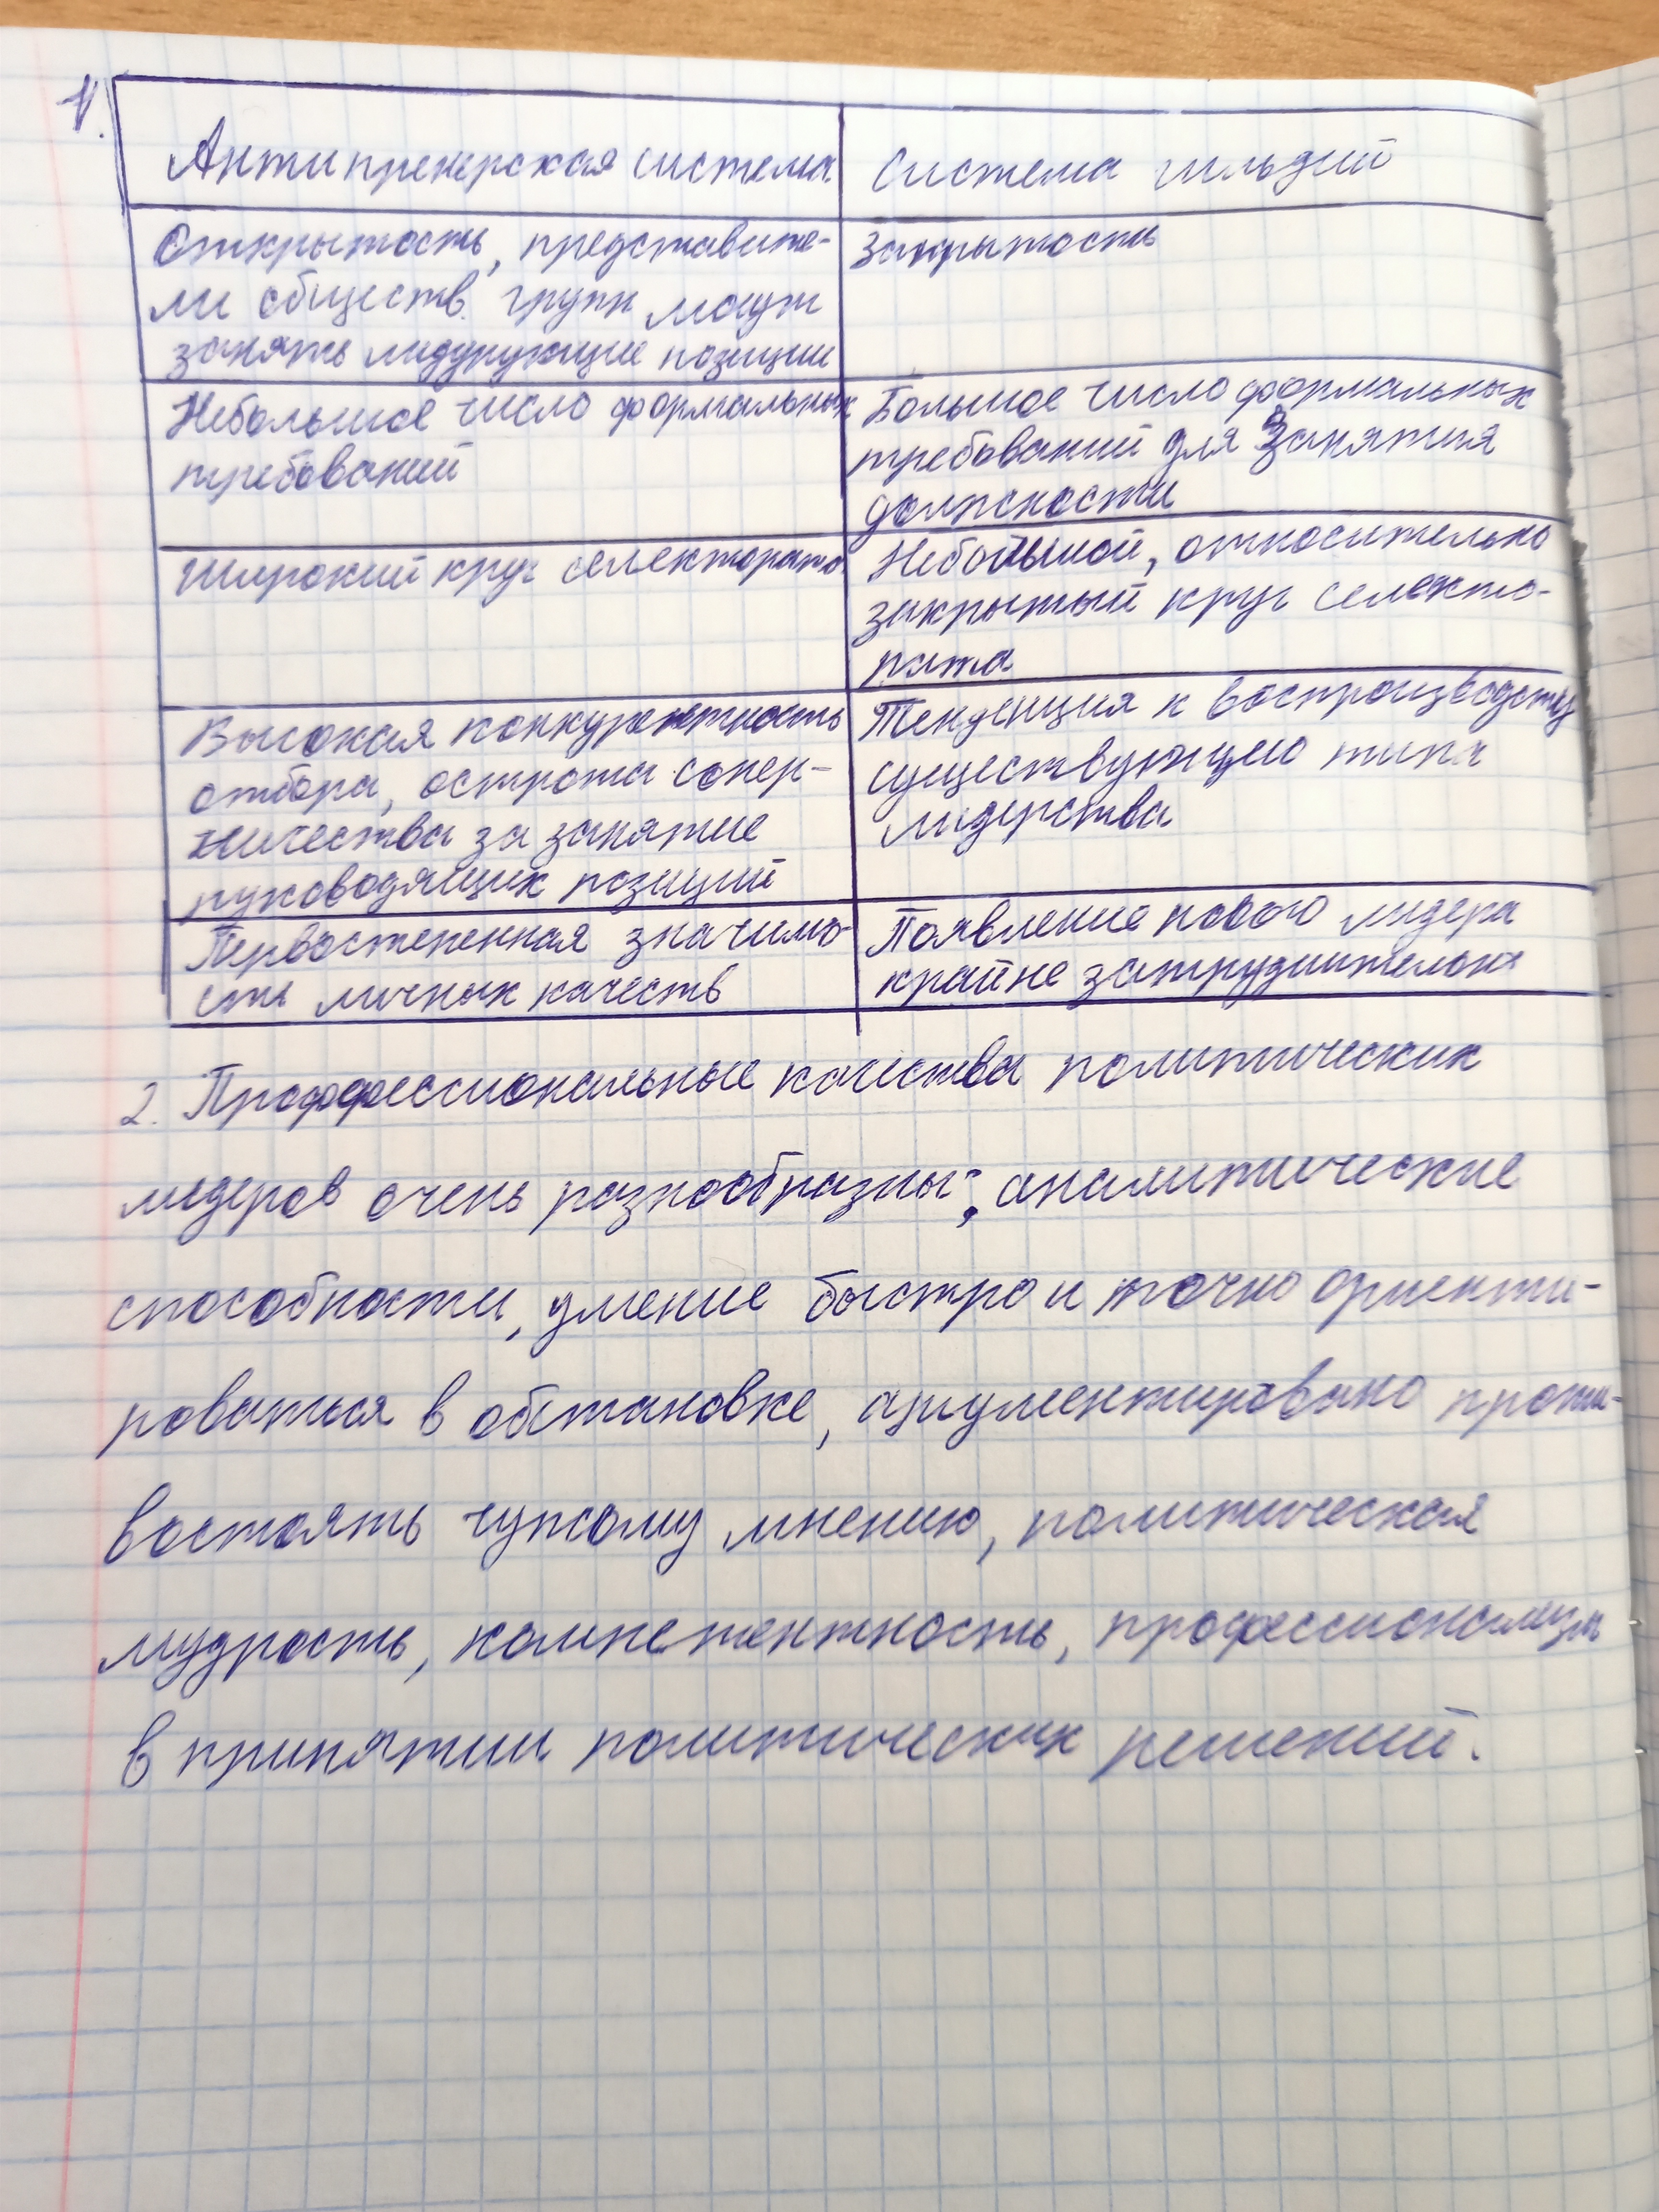 1.
Антипренерская система
Система гильдий
Открытость, представите-
ли обществ. групп могут
занять лидурующие позиции
Закрытость
Небольшое число формальных
требований
Большое число формальных
требований для занятия
должности
Широкий круг селектората
Небольшой, относительно
закрытый круг селекто-
рата
Высокая конкурентность
отбора, острота сопер-
ничества за занятие
руководящих позиций
Тенденция к воспроизводству
существующего типа
лидерства
Первостепенная значимо-
сть личных качеств
Появление нового лидера
крайне затруднительна
2. Профессиональные качества политических
лидеров очень разнообразны:, аналитические
способности, умение быстро и точно ориенти-
роваться в обстановке, аргументировано проти-
востоять чужому мнению, политическая
мудрость, компетентность, профессионализм
в принятии политических решений.